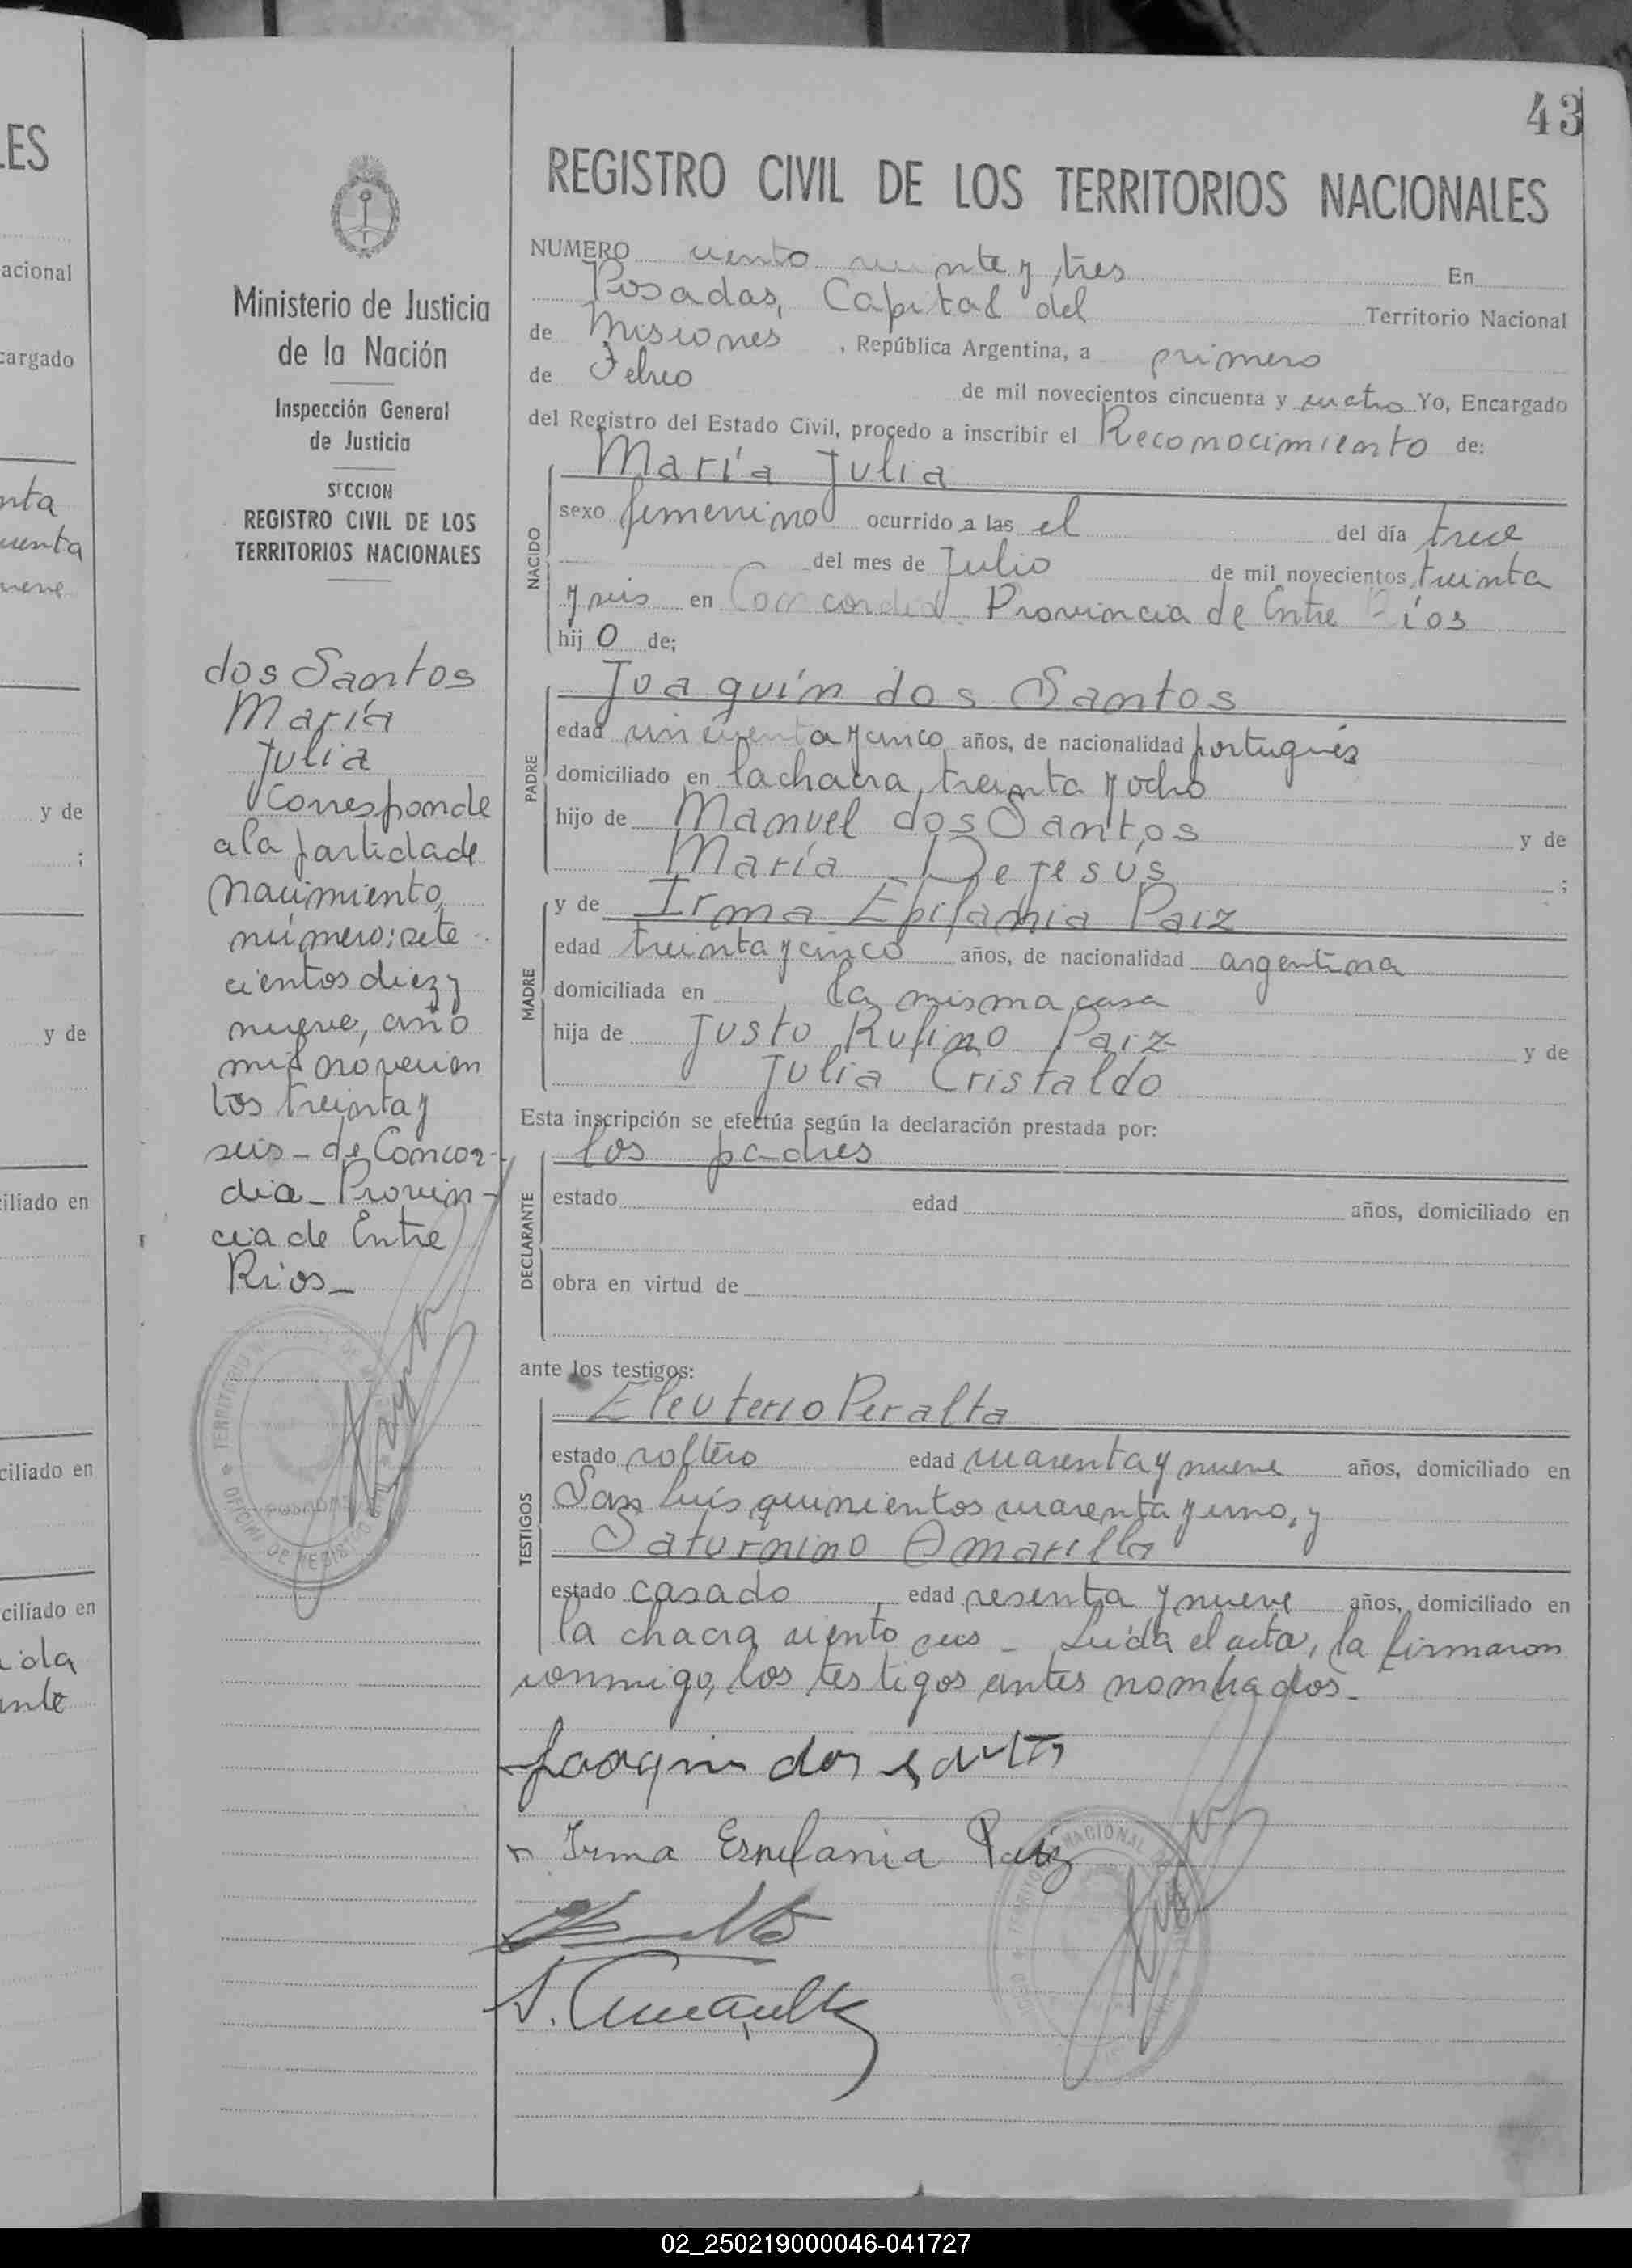 43
REGISTRO CIVIL DE LOS TERRITORIOS NACIONALES
NUMERO ciento veinte y tres En
Posadas, Capital del Territorio Nacional
de Misiones, República Argentina, a primero
de Febreo de mil novecientos cincuenta y cuatro Yo, Encargado
del Registro del Estado Civil, procedo a inscribir el Reconocimiento de:
María Julia
NACIDO
sexo femenino ocurrido a las el del día trece
del mes de Julio de mil novecientos treinta
y seis en Concordia. Provincia de Entre Ríos
hijo de;
PADRE
Joaquín dos Santos
edad cincuenta y cinco años, de nacionalidad portugués
domiciliado en la chacra treinta y ocho
hijo de Manuel dos Santos y de
María De Jesús ;
MADRE
y de Irma Epifania Paiz
edad treinta y cinco años, de nacionalidad argentina
domiciliada en la misma casa
hija de Justo Rufino Paiz y de
Julia Cristaldo
Esta inscripción se efectúa según la declaración prestada por:
los padres
DECLARANTE
estado edad años, domiciliado en
obra en virtud de
ante los testigos:
TESTIGOS
Eleuterio Peralta
estado soltero edad cuarenta y nueve años, domiciliado en
San Luis quinientos cuarenta y uno, y
Saturnino Amarilla
estado casado edad sesenta y nueve años, domiciliado en
la chacra ciento seis - Leída el acta, la firmaron
conmigo, los testigos antes nombrados.
Joaquin dos santos
Irma Epifania Paiz
Ministerio de Justicia
de la Nación
Inspección General
de Justicia
SECCION
REGISTRO CIVIL DE LOS
TERRITORIOS NACIONALES
dos Santos
María
Julia
Corresponde
a la partida de
Nacimiento,
número: sete
cientos diez y
nueve, año
mil novecien
tos treinta y
seis - de Concor-
dia - Provin-
cia de Entre
Ríos -
POSADAS
ES
acional
cargado
nta
uenta
y de
;
y de
iliado en
ciliado en
ciliado en
02_250219000046-041727